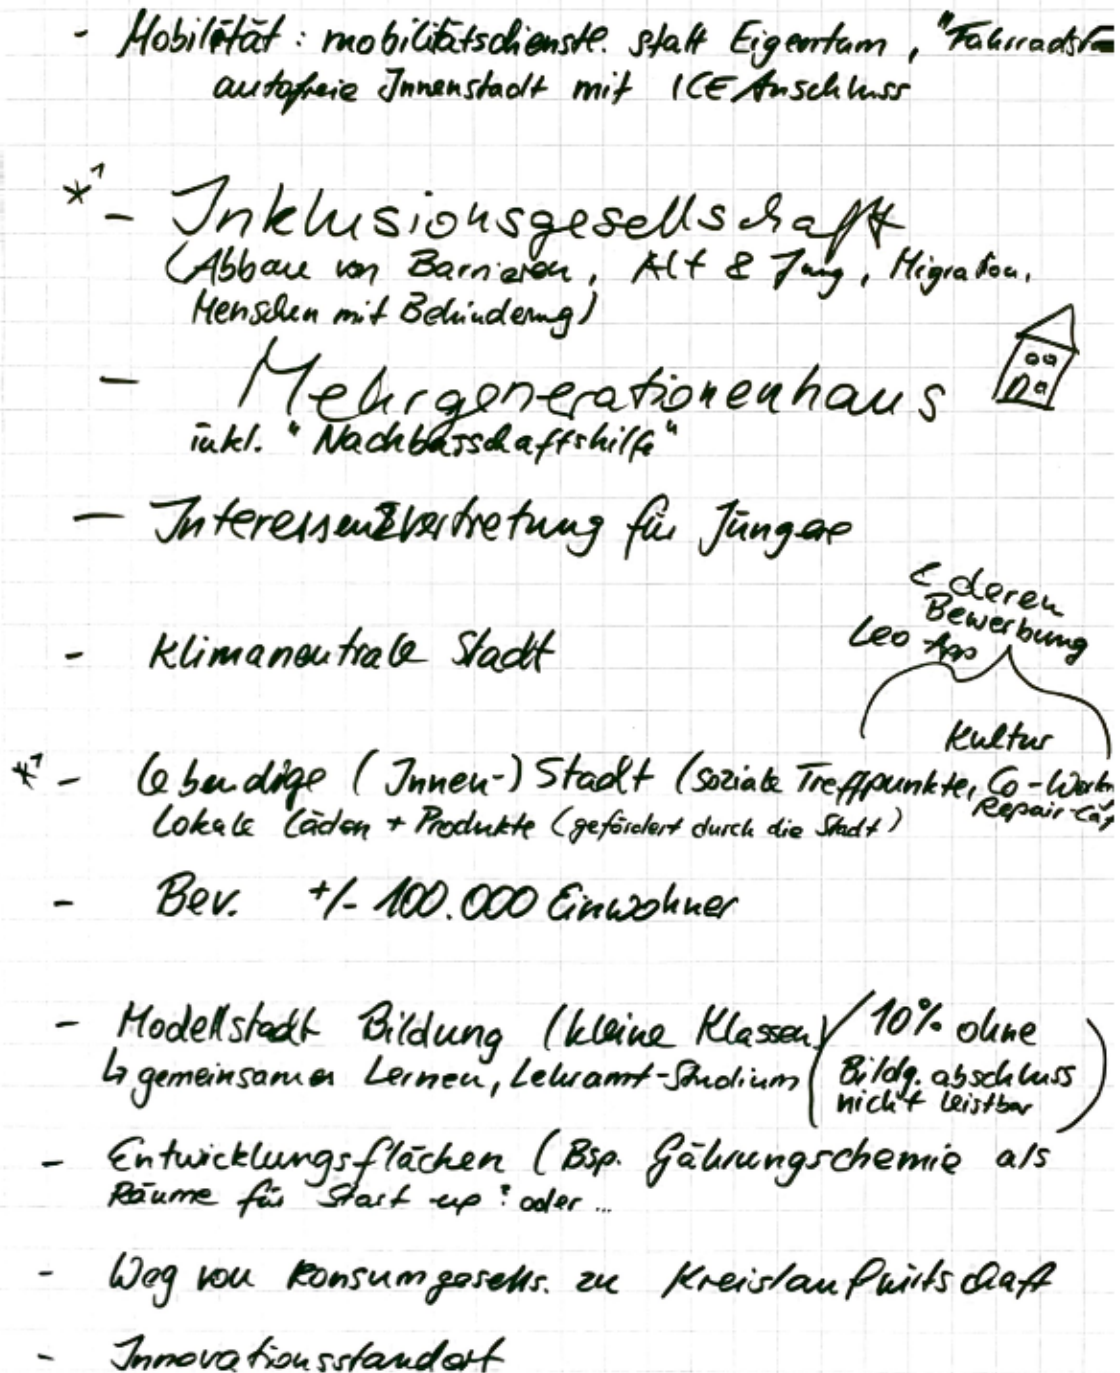 - Mobilität: mobilitätsdienste. statt Eigentum, "Fahrradst
autofreie Innenstadt mit ICE Anschluss
*1 - Inklusionsgesellschaft
(Abbau von Barrieren, Alt & Jung, Migration,
Menschen mit Behinderung)
- Mehrgenerationenhaus
inkl. "Nachbarschaftshilfe"
- Interessensvertretung für Jüngere
& deren
Bewerbung
Leo App
- Klimaneutrale Stadt
Kultur
*1 - lebendige (Innen-) Stadt (soziale Treffpunkte, Co-Workn
Repair-Caf
Lokale Läden + Produkte (gefördert durch die Stadt)
- Bev. +/- 100.000 Einwohner
- Modellstadt Bildung (kleine Klassen)
↳ gemeinsames Lernen, Lehramt-Studium
(10% ohne
Bildg. abschluss
nicht leistbar)
- Entwicklungsflächen (Bsp. Gährungschemie als
Räume für Start up? oder ...
- Weg von Konsumgesells. zu Kreislaufwirtschaft
- Innovationsstandort